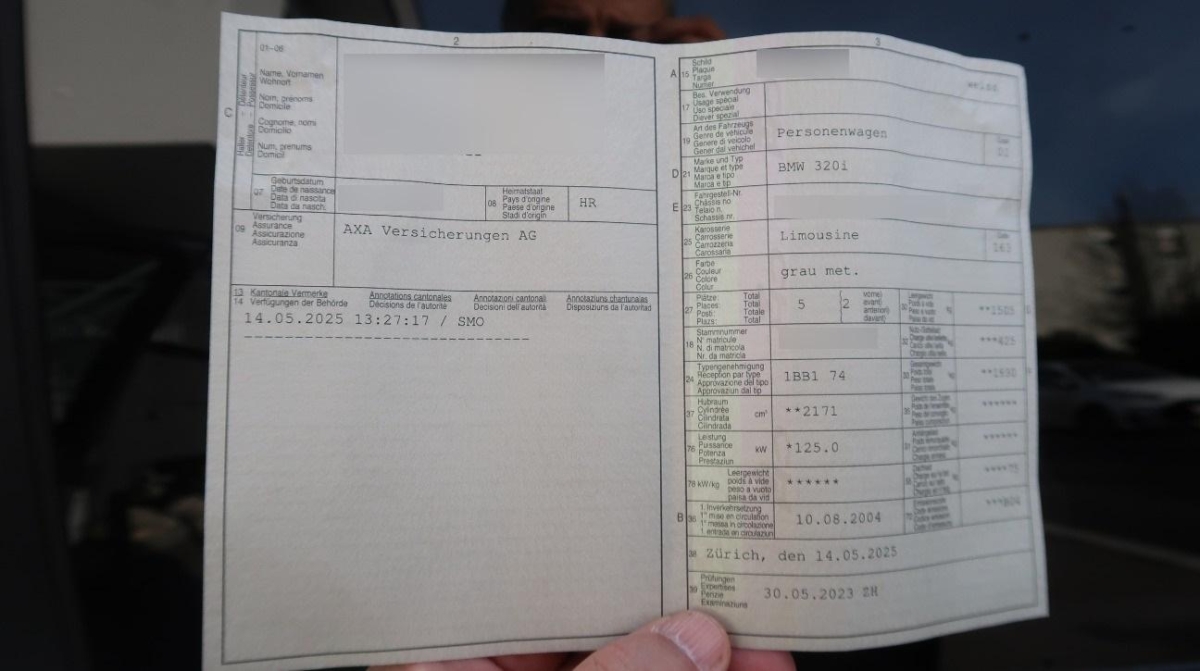 2
01-06
C
Halter - Détenteur
Detentore - Possessur
Name, Vornamen
Wohnort
Nom, prénoms
Domicile
Cognome, nomi
Domicilio
Num, prenums
Domicil
--
07
Geburtsdatum
Date de naissance
Data di nascita
Data da nasch.
08
Heimatstaat
Pays d'origine
Paese d'origine
Stadi d'origin
HR
09
Versicherung
Assurance
Assicurazione
Assicuranza
AXA Versicherungen AG
13
14
Kantonale Vermerke
Verfügungen der Behörde
Annotations cantonales
Décisions de l'autorité
Annotazioni cantonali
Decisioni dell'autorità
Annotaziuns chantunalas
Disposiziuns da l'autoritad
14.05.2025 13:27:17 / SMO
----------------------------
3
A
15
Schild
Plaque
Targa
Numer
weiss
17
Bes. Verwendung
Usage spécial
Uso speciale
Diever spezial
19
Art des Fahrzeugs
Genre de véhicule
Genere di veicolo
Gener dal vehichel
Personenwagen
Code
D
21
Marke und Typ
Marque et type
Marca e tipo
Marca e tip
BMW 320i
E
23
Fahrgestell-Nr.
Châssis no
Telaio n.
Schassis nr.
25
Karosserie
Carrosserie
Carrozzeria
Carossaria
Limousine
Code
26
Farbe
Couleur
Colore
Colur
grau met.
27
Plätze:
Places:
Posti:
Plazs:
Total
Total
Totale
Total
5
2
vorne)
avant)
anteriori)
davant)
18
Stammnummer
N° matricule
N. di matricola
Nr. da matricla
24
Typengenehmigung
Réception par type
Approvazione del tipo
Approvaziun dal tip
1BB1 74
37
Hubraum
Cylindrée
Cilindrata
Cilindrada
cm³
**2171
76
Leistung
Puissance
Potenza
Prestaziun
kW
*125.0
78
kW/kg
Leergewicht
poids à vide
peso a vuoto
paisa da vid
******
B
36
1. Inverkehrsetzung
1re mise en circulation
1a messa in circolazione
1. entrada en circulaziun
10.08.2004
38
Zürich, den 14.05.2025
39
Prüfungen
Expertises
Perizie
Examinaziuns
30.05.2023 ZH